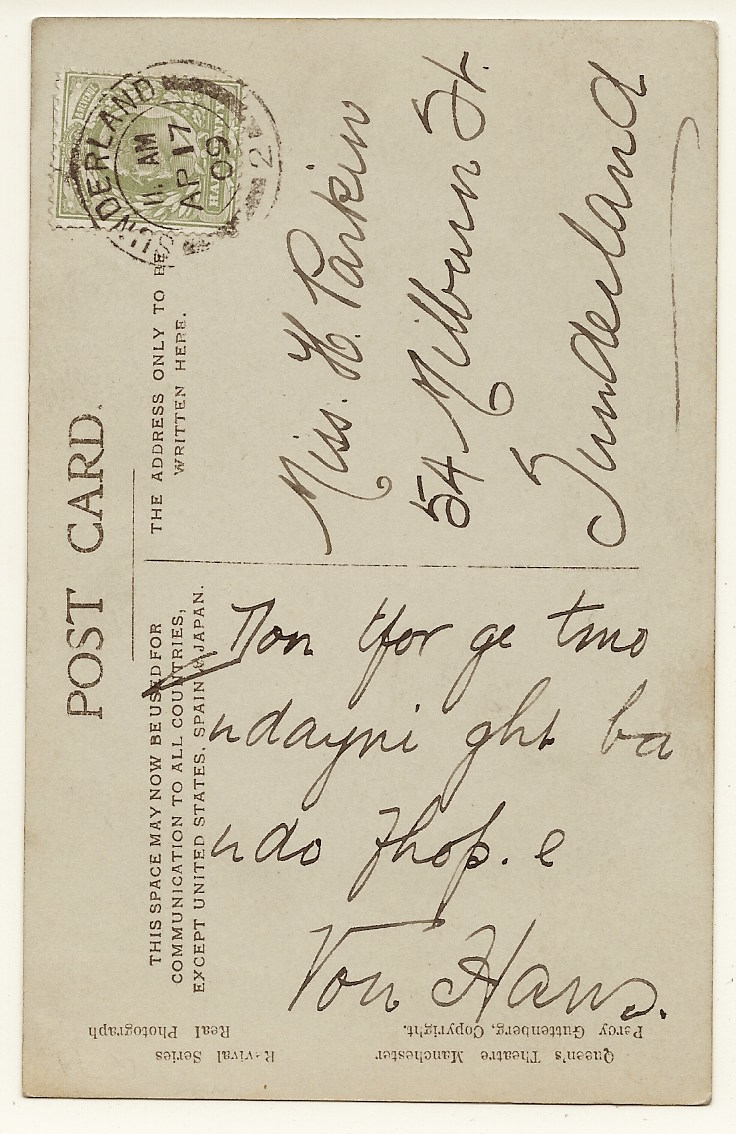 POST CARD.
THIS SPACE MAY NOW BE USED FOR
COMMUNICATION TO ALL COUNTRIES,
EXCEPT UNITED STATES, SPAIN & JAPAN.
THE ADDRESS ONLY TO BE
WRITTEN HERE.
SUNDERLAND
11. AM
AP 17
09
2
Don tfor ge tmo
ndayni ght ba
ndo fhop. e
Von Hans.
Miss. H. Parkin
54 Milburn St.
Sunderland
Queen's Theatre Manchester Revival Series
Percy Guttenberg, Copyright. Real Photograph